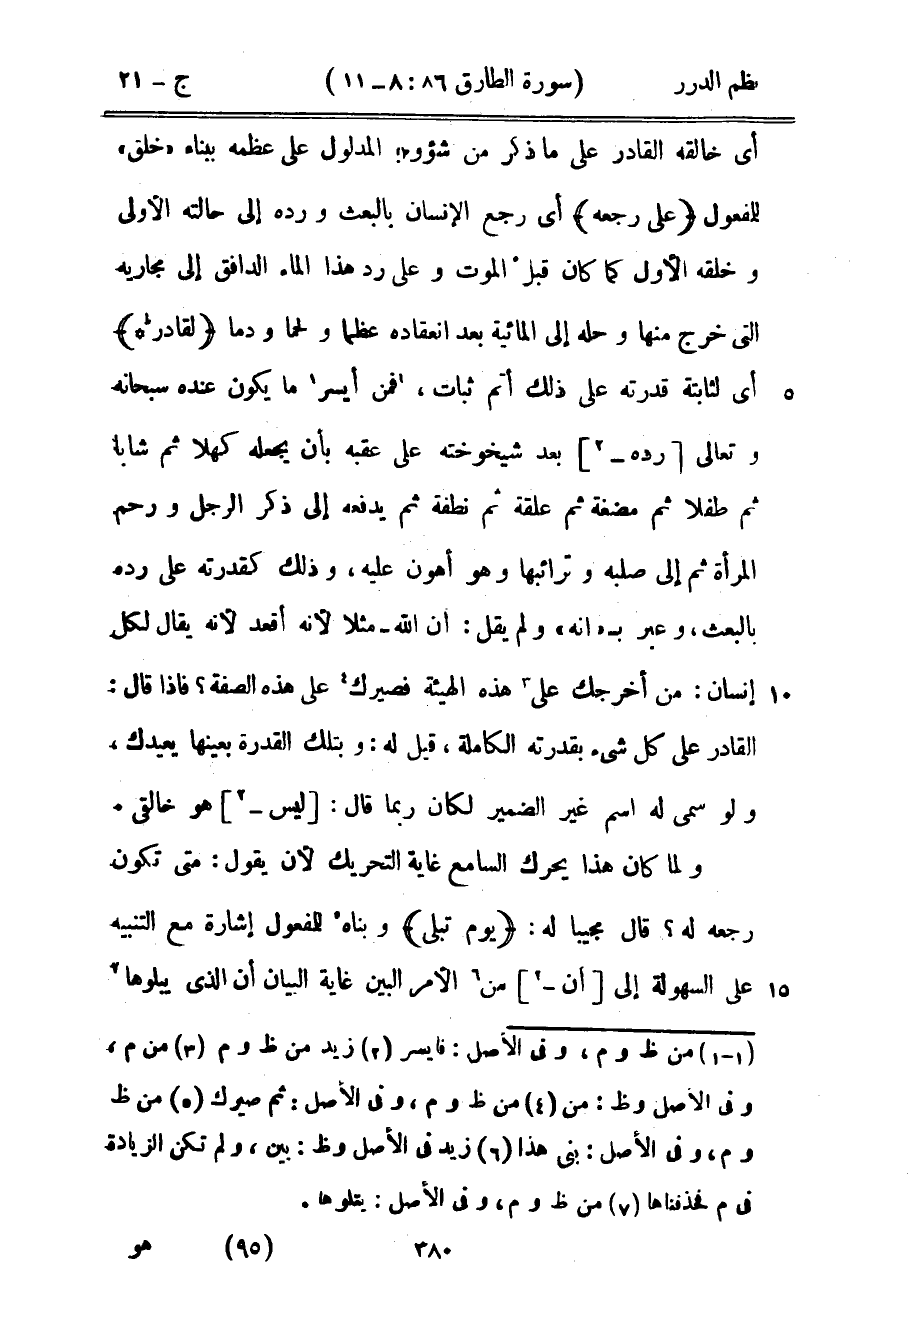 نظم الدرر (سورة الطارق ٨٦: ٨ـ ١١) ج - ٢١
أى خالقه القادر على ما ذكر من شؤونه المدلول على عظمه ببناء «خلق»
للفعول ﴿على رجعه﴾ أى رجع الإنسان بالبعث و رده إلى حالته الأولى
و خلقه الأول كما كان قبل الموت و على رد هذا الماء الدافق إلى مجاريه
التى خرج منها و حله إلى المائية بعد انعقاده عظما و لحما و دما ﴿لقادرط٥﴾
٥ أى لثابتة قدرته على ذلك أتم ثبات، ١فمن أيسر١ ما يكون عنده سبحانه
و تعالى [رده ـ ٢] بعد شيخوخته على عقبه بأن يجعله كهلا ثم شابا
ثم طفلا ثم مضغة ثم علقة ثم نطفة ثم يدفعه إلى ذكر الرجل و رحم
المرأة ثم إلى صلبه و ترائبها و هو أهون عليه، و ذلك كقدرته على رده
بالبعث، و عبر بـ«انه» و لم يقل: أن الله ـ مثلا لأنه أقعد لأنه يقال لكل
١٠ إنسان: من أخرجك على٣ هذه الهيئة فصيرك٤ على هذه الصفة؟ فاذا قال:
القادر على كل شىء بقدرته الكاملة، قيل له: و بتلك القدرة بعينها يعيدك،
و لو سمى له اسم غير الضمير لكان ربما قال: [ليس ـ ٢] هو خالقى.
و لما كان هذا يحرك السامع غاية التحريك لأن يقول: متى تكون
رجعه له؟ قال مجيبا له: ﴿يوم تبلى﴾ و بناه٥ للفعول إشارة مع التنبيه
١٥ على السهولة إلى [أن ـ ٢] من٦ الأمر البين غاية البيان أن الذى يبلوها٧
(١-١) من ظ و م، و فى الأصل: فايسر (٢) زيد من ظ و م (٣) من م،
و فى الأصل و ظ: من (٤) من ظ و م، و فى الأصل: ثم صيرك (٥) من ظ
و م، و فى الأصل: بنى هذا (٦) زيد فى الأصل و ظ: بين، و لم تكن الزيادة
فى م فحذفناها (٧) من ظ و م، و فى الأصل: يتلوها.
٣٨٠ (٩٥) هو